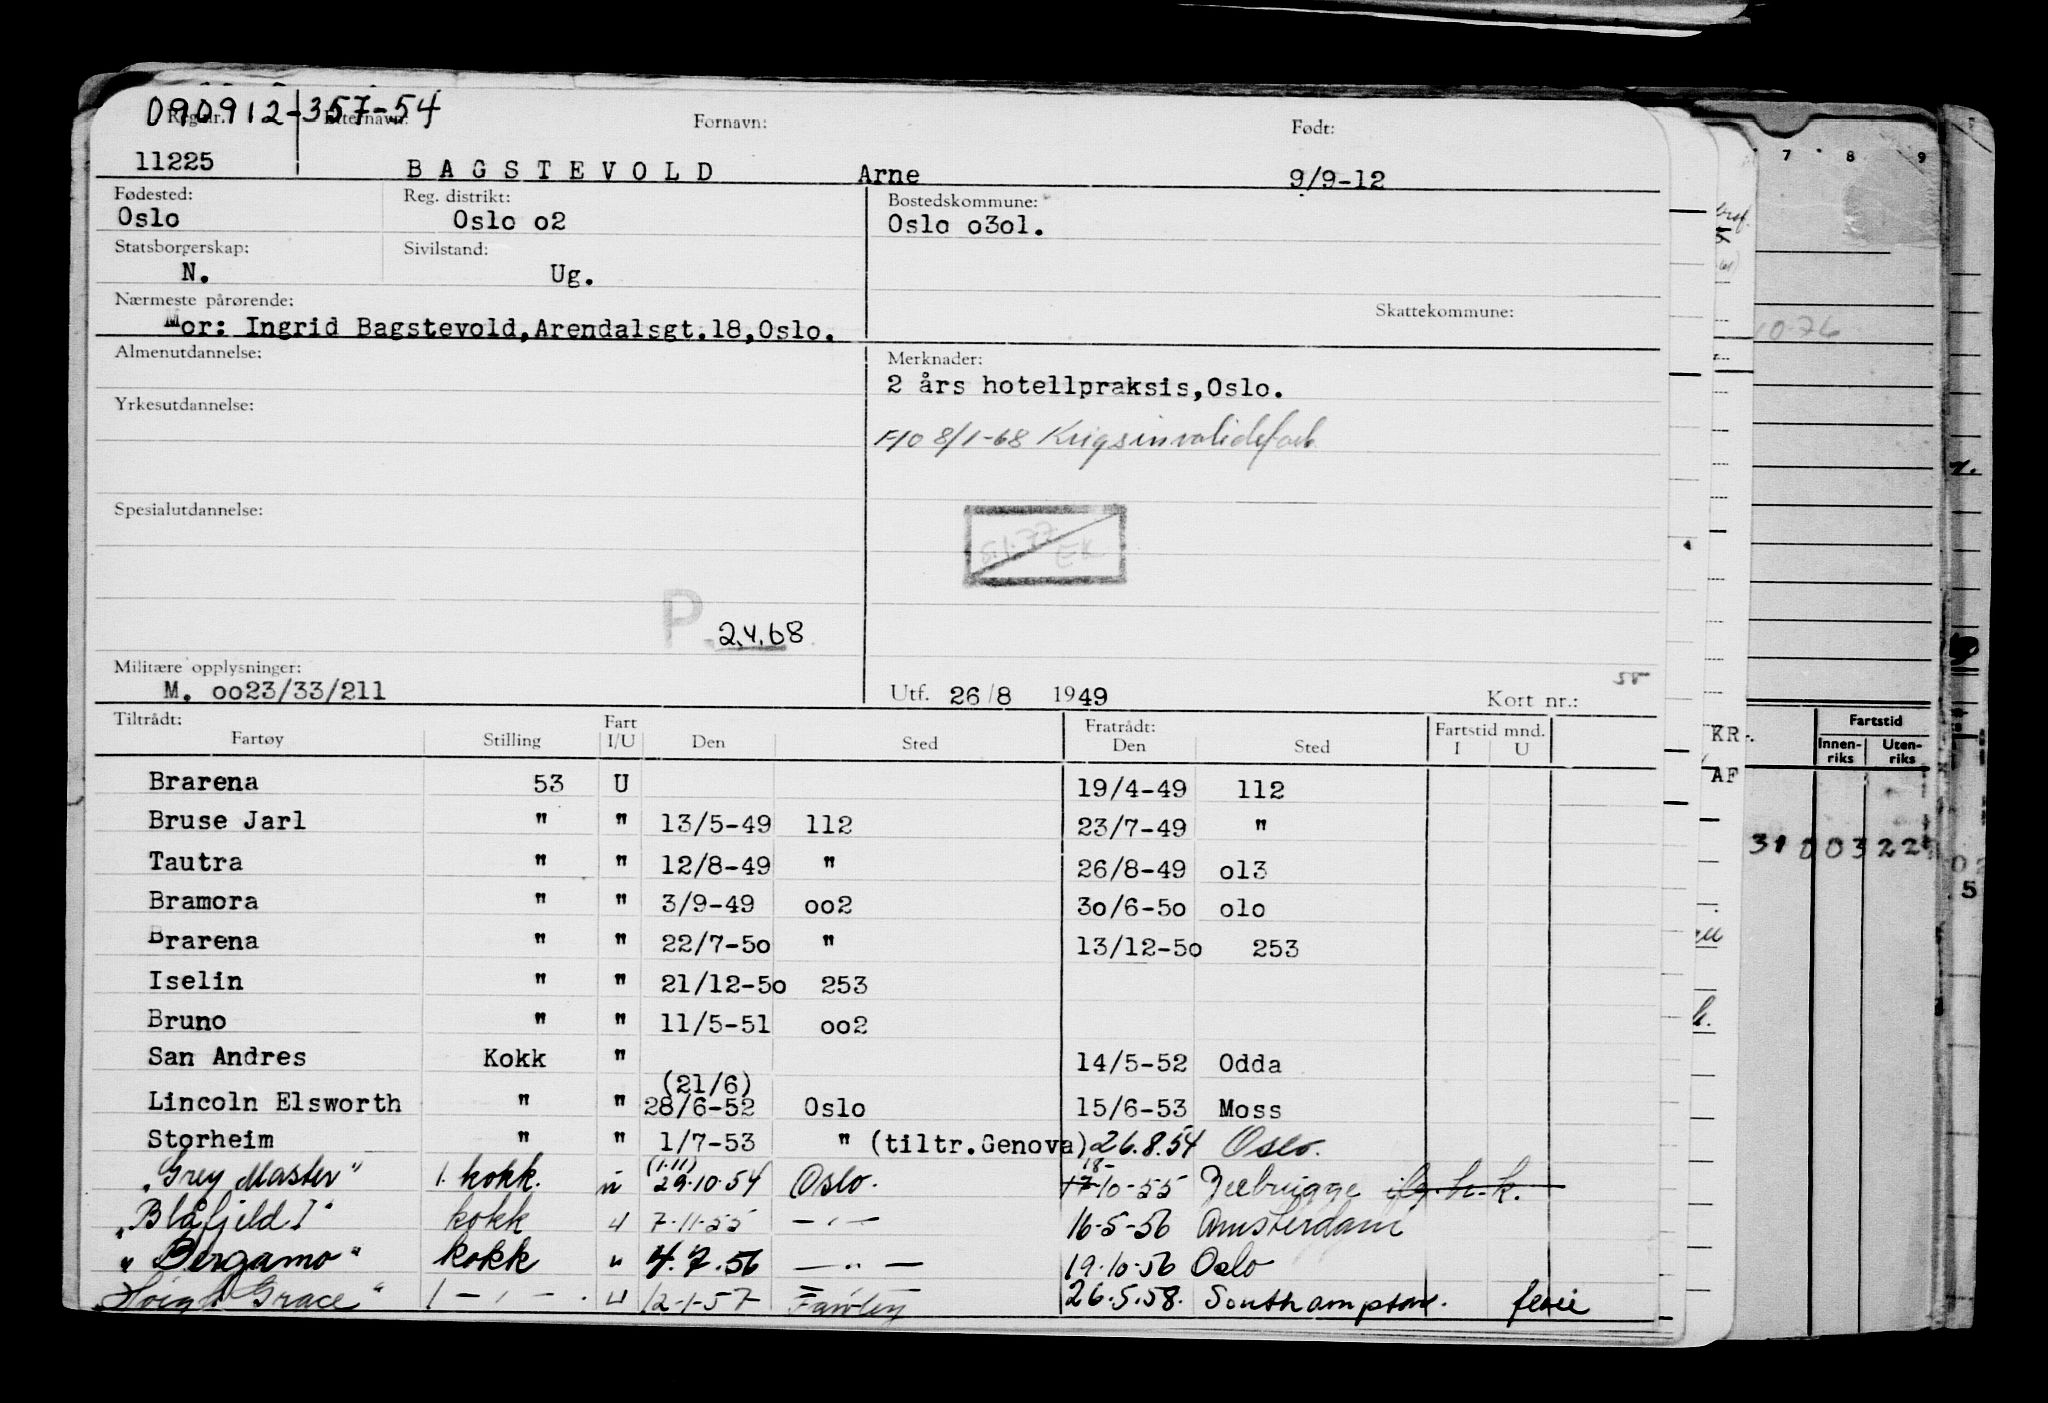 090912-357-54
Reg. nr. Etternavn: Fornavn: Født:
11225 BAGSTEVOLD Arne 9/9-12
Fødested: Reg. distrikt: Bostedskommune:
Oslo Oslo o2 Oslo o3o1.
Statsborgerskap: Sivilstand:
N. Ug.
Nærmeste pårørende: Skattekommune:
Mor: Ingrid Bagstevold,Arendalsgt.18,Oslo.
Almenutdannelse: Merknader:
2 års hotellpraksis,Oslo.
Yrkesutdannelse:
8/1-68 Krigsinvalideforb
Spesialutdannelse:
EK
P 2.4.68
Militære opplysninger:
M. oo23/33/211 Utf. 26/8 1949 Kort nr.:
Tiltrådt: Fart Fratrådt: Fartstid mnd.
Fartøy Stilling I/U Den Sted Den Sted I U
Brarena 53 U 19/4-49 112
Bruse Jarl " " 13/5-49 112 23/7-49 "
Tautra " " 12/8-49 " 26/8-49 o13
Bramora " " 3/9-49 oo2 3o/6-5o o1o
Brarena " " 22/7-5o " 13/12-5o 253
Iselin " " 21/12-5o 253
Bruno " " 11/5-51 oo2
San Andres Kokk " 14/5-52 Odda
(21/6)
Lincoln Elsworth " " 28/6-52 Oslo 15/6-53 Moss
Storheim " " 1/7-53 " (tiltr.Genova) 26.8.54 Oslo.
(1.11) 18-
"Grey Master" 1. kokk. u 29.10.54 Oslo. 17-10-55 Zeebrügge
"Blåfjeld I" kokk u 7.11.55 — " — 16-5-56 Amsterdam
"Bergamo" kokk u 4.7.56 — " — 19.10.56 Oslo
"Høegh Grace" 1 — " — . u 12-1-57 Fawley 26.5.58. Southampton. ferie
7 8 9
10-76
KR.
AF
Fartstid
Innenriks Utenriks
310 03 22
5